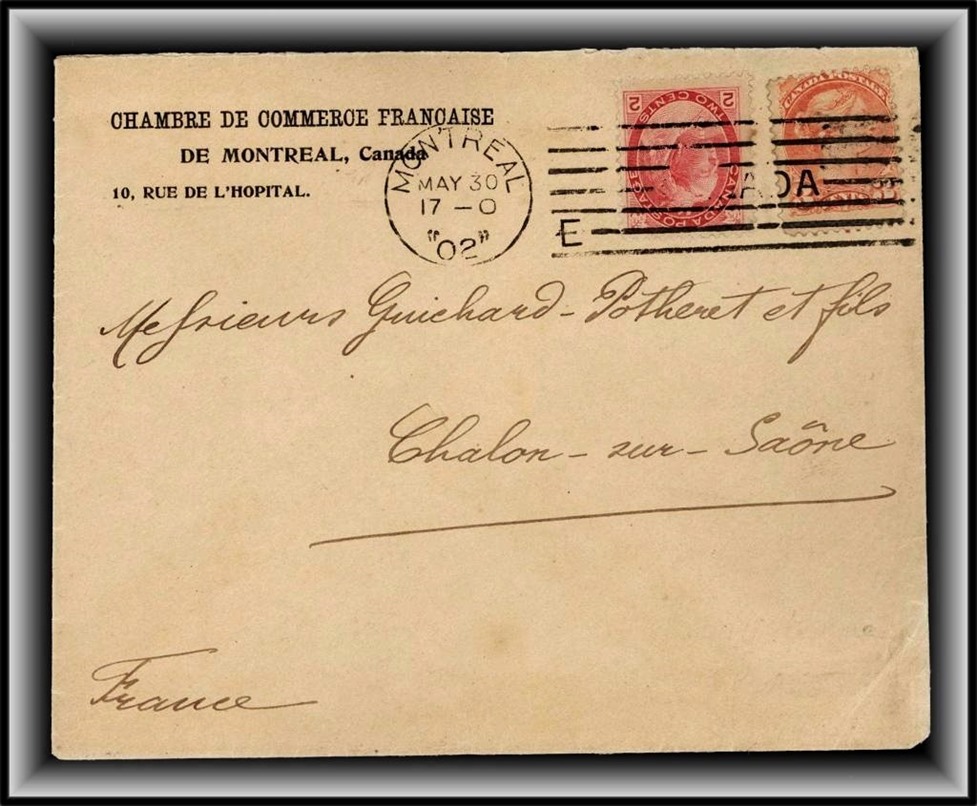 CHAMBRE DE COMMERCE FRANÇAISE
DE MONTREAL, Canada
10, RUE DE L'HOPITAL.
MONTREAL
MAY 30
17 - 0
"02"
2 TWO CENTS 2
CANADA POSTAGE
CANADA POSTAGE
E
ADA
Messieurs Guichard - Potheret et fils
Chalon - sur - Saône
France